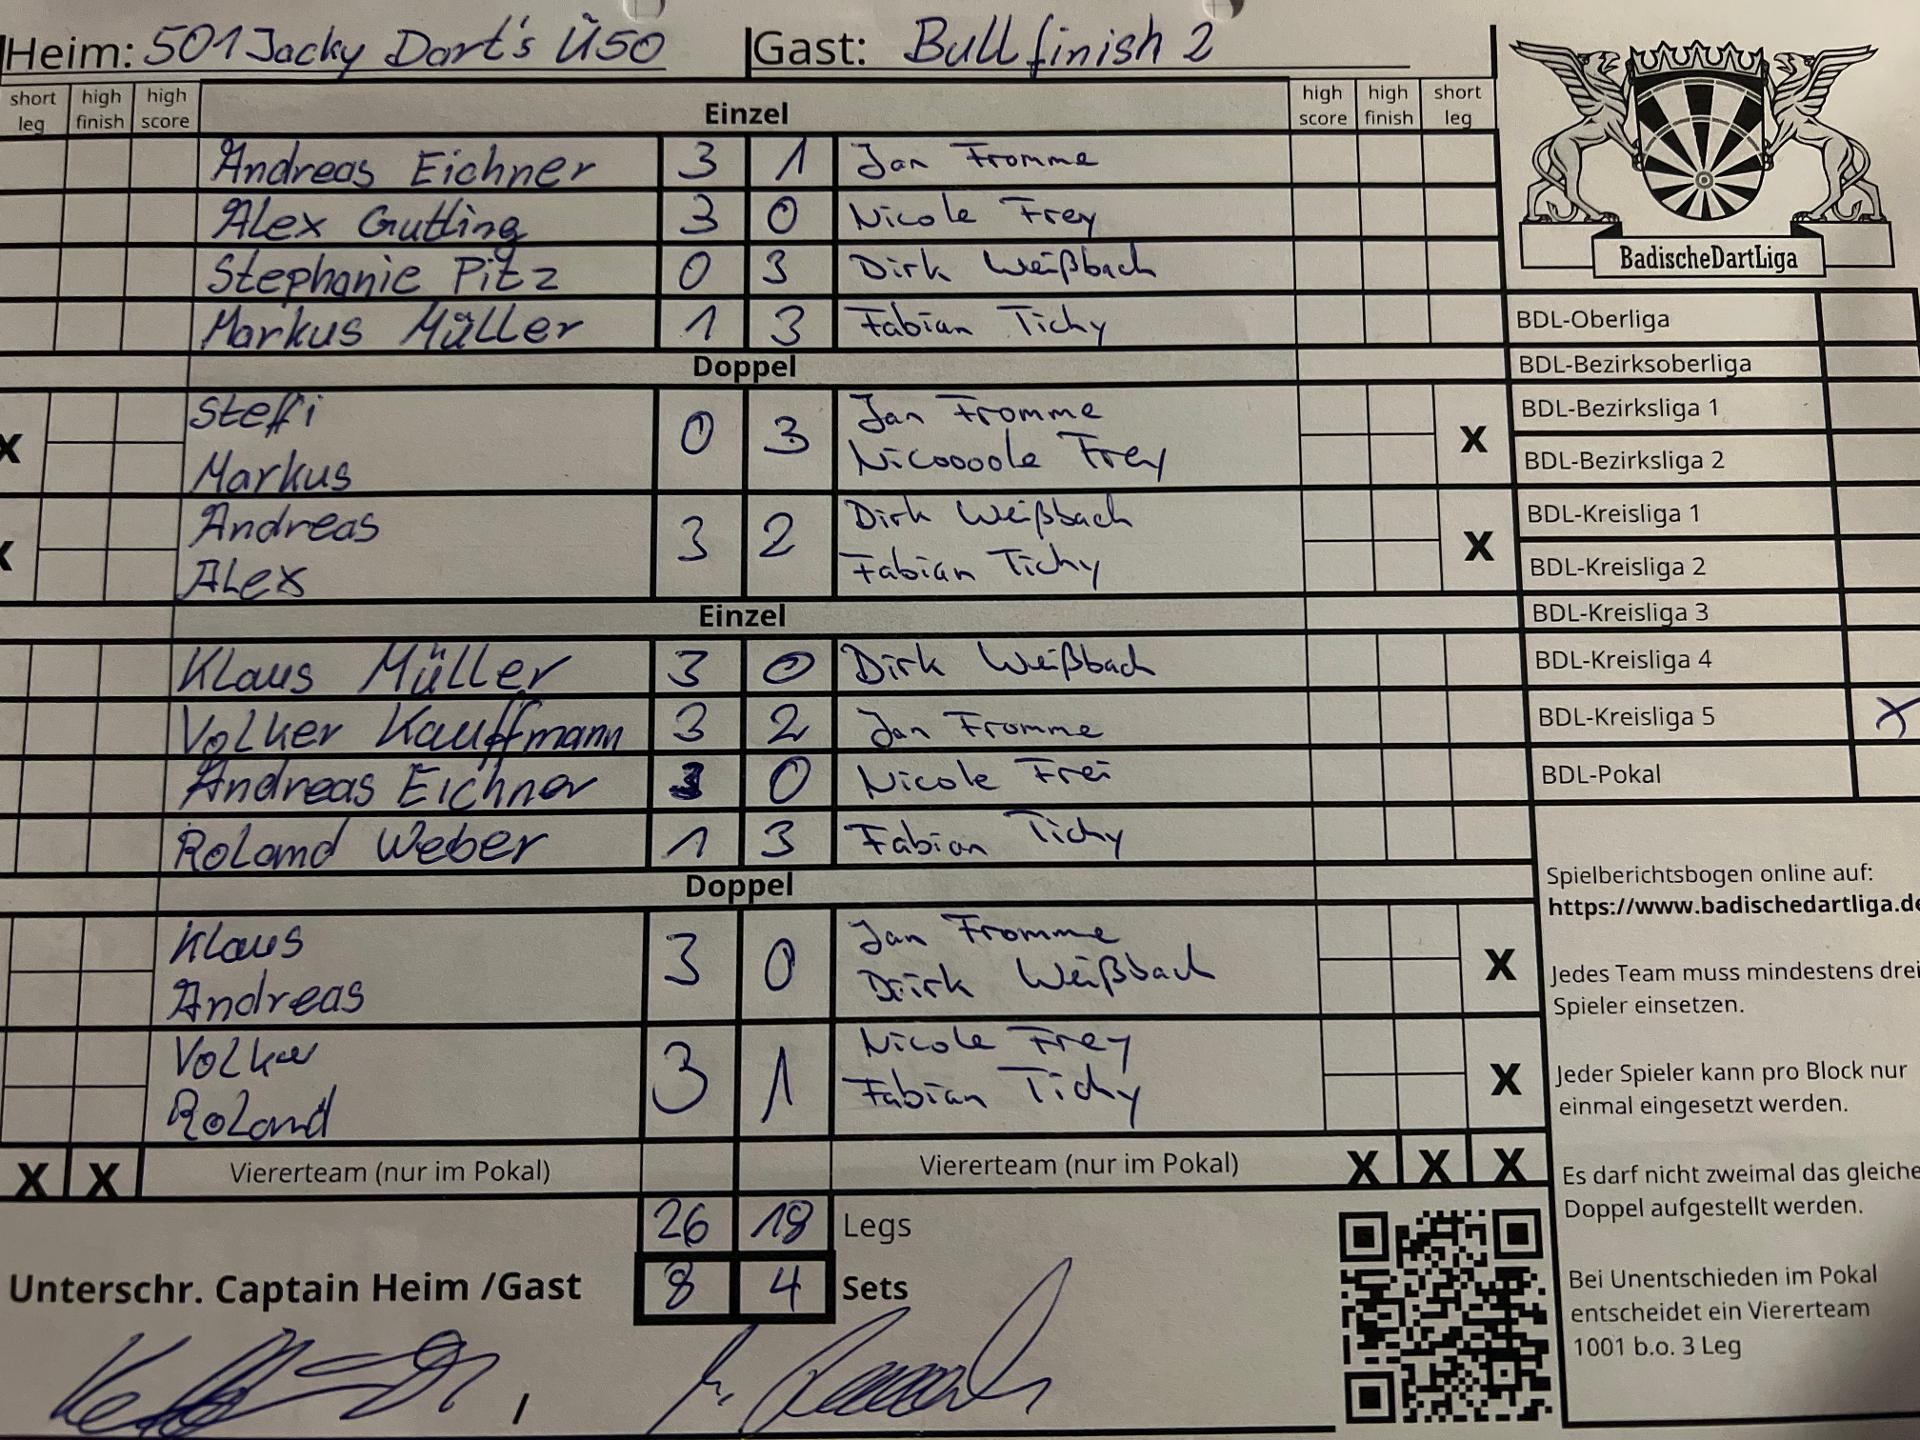 Heim: 501 Jacky Dart's Ü50 Gast: Bullfinish 2
short leg high finish high score Einzel high score high finish short leg
Andreas Eichner 3 1 Jan Fromme
Alex Gutting 3 0 Nicole Frey
Stephanie Pitz 0 3 Dirk Weißbach
Markus Müller 1 3 Fabian Tichy
Doppel
Steffi 0 3 Jan Fromme
X Markus Nicoooole Frey X
Andreas 3 2 Dirk Weißbach
X Alex Fabian Tichy X
Einzel
Klaus Müller 3 0 Dirk Weißbach
Volker Kauffmann 3 2 Jan Fromme
Andreas Eichner 3 0 Nicole Frei
Roland Weber 1 3 Fabian Tichy
Doppel
Klaus 3 0 Jan Fromme
Andreas Diirk Weißbach X
Volker 3 1 Nicole Frey
Roland Fabian Tichy X
X X Viererteam (nur im Pokal) Viererteam (nur im Pokal) X X X
26 18 Legs
Unterschr. Captain Heim /Gast 8 4 Sets
BadischeDartLiga
BDL-Oberliga
BDL-Bezirksoberliga
BDL-Bezirksliga 1
BDL-Bezirksliga 2
BDL-Kreisliga 1
BDL-Kreisliga 2
BDL-Kreisliga 3
BDL-Kreisliga 4
BDL-Kreisliga 5 X
BDL-Pokal
Spielberichtsbogen online auf:
https://www.badischedartliga.de
Jedes Team muss mindestens drei
Spieler einsetzen.
Jeder Spieler kann pro Block nur
einmal eingesetzt werden.
Es darf nicht zweimal das gleiche
Doppel aufgestellt werden.
Bei Unentschieden im Pokal
entscheidet ein Viererteam
1001 b.o. 3 Leg